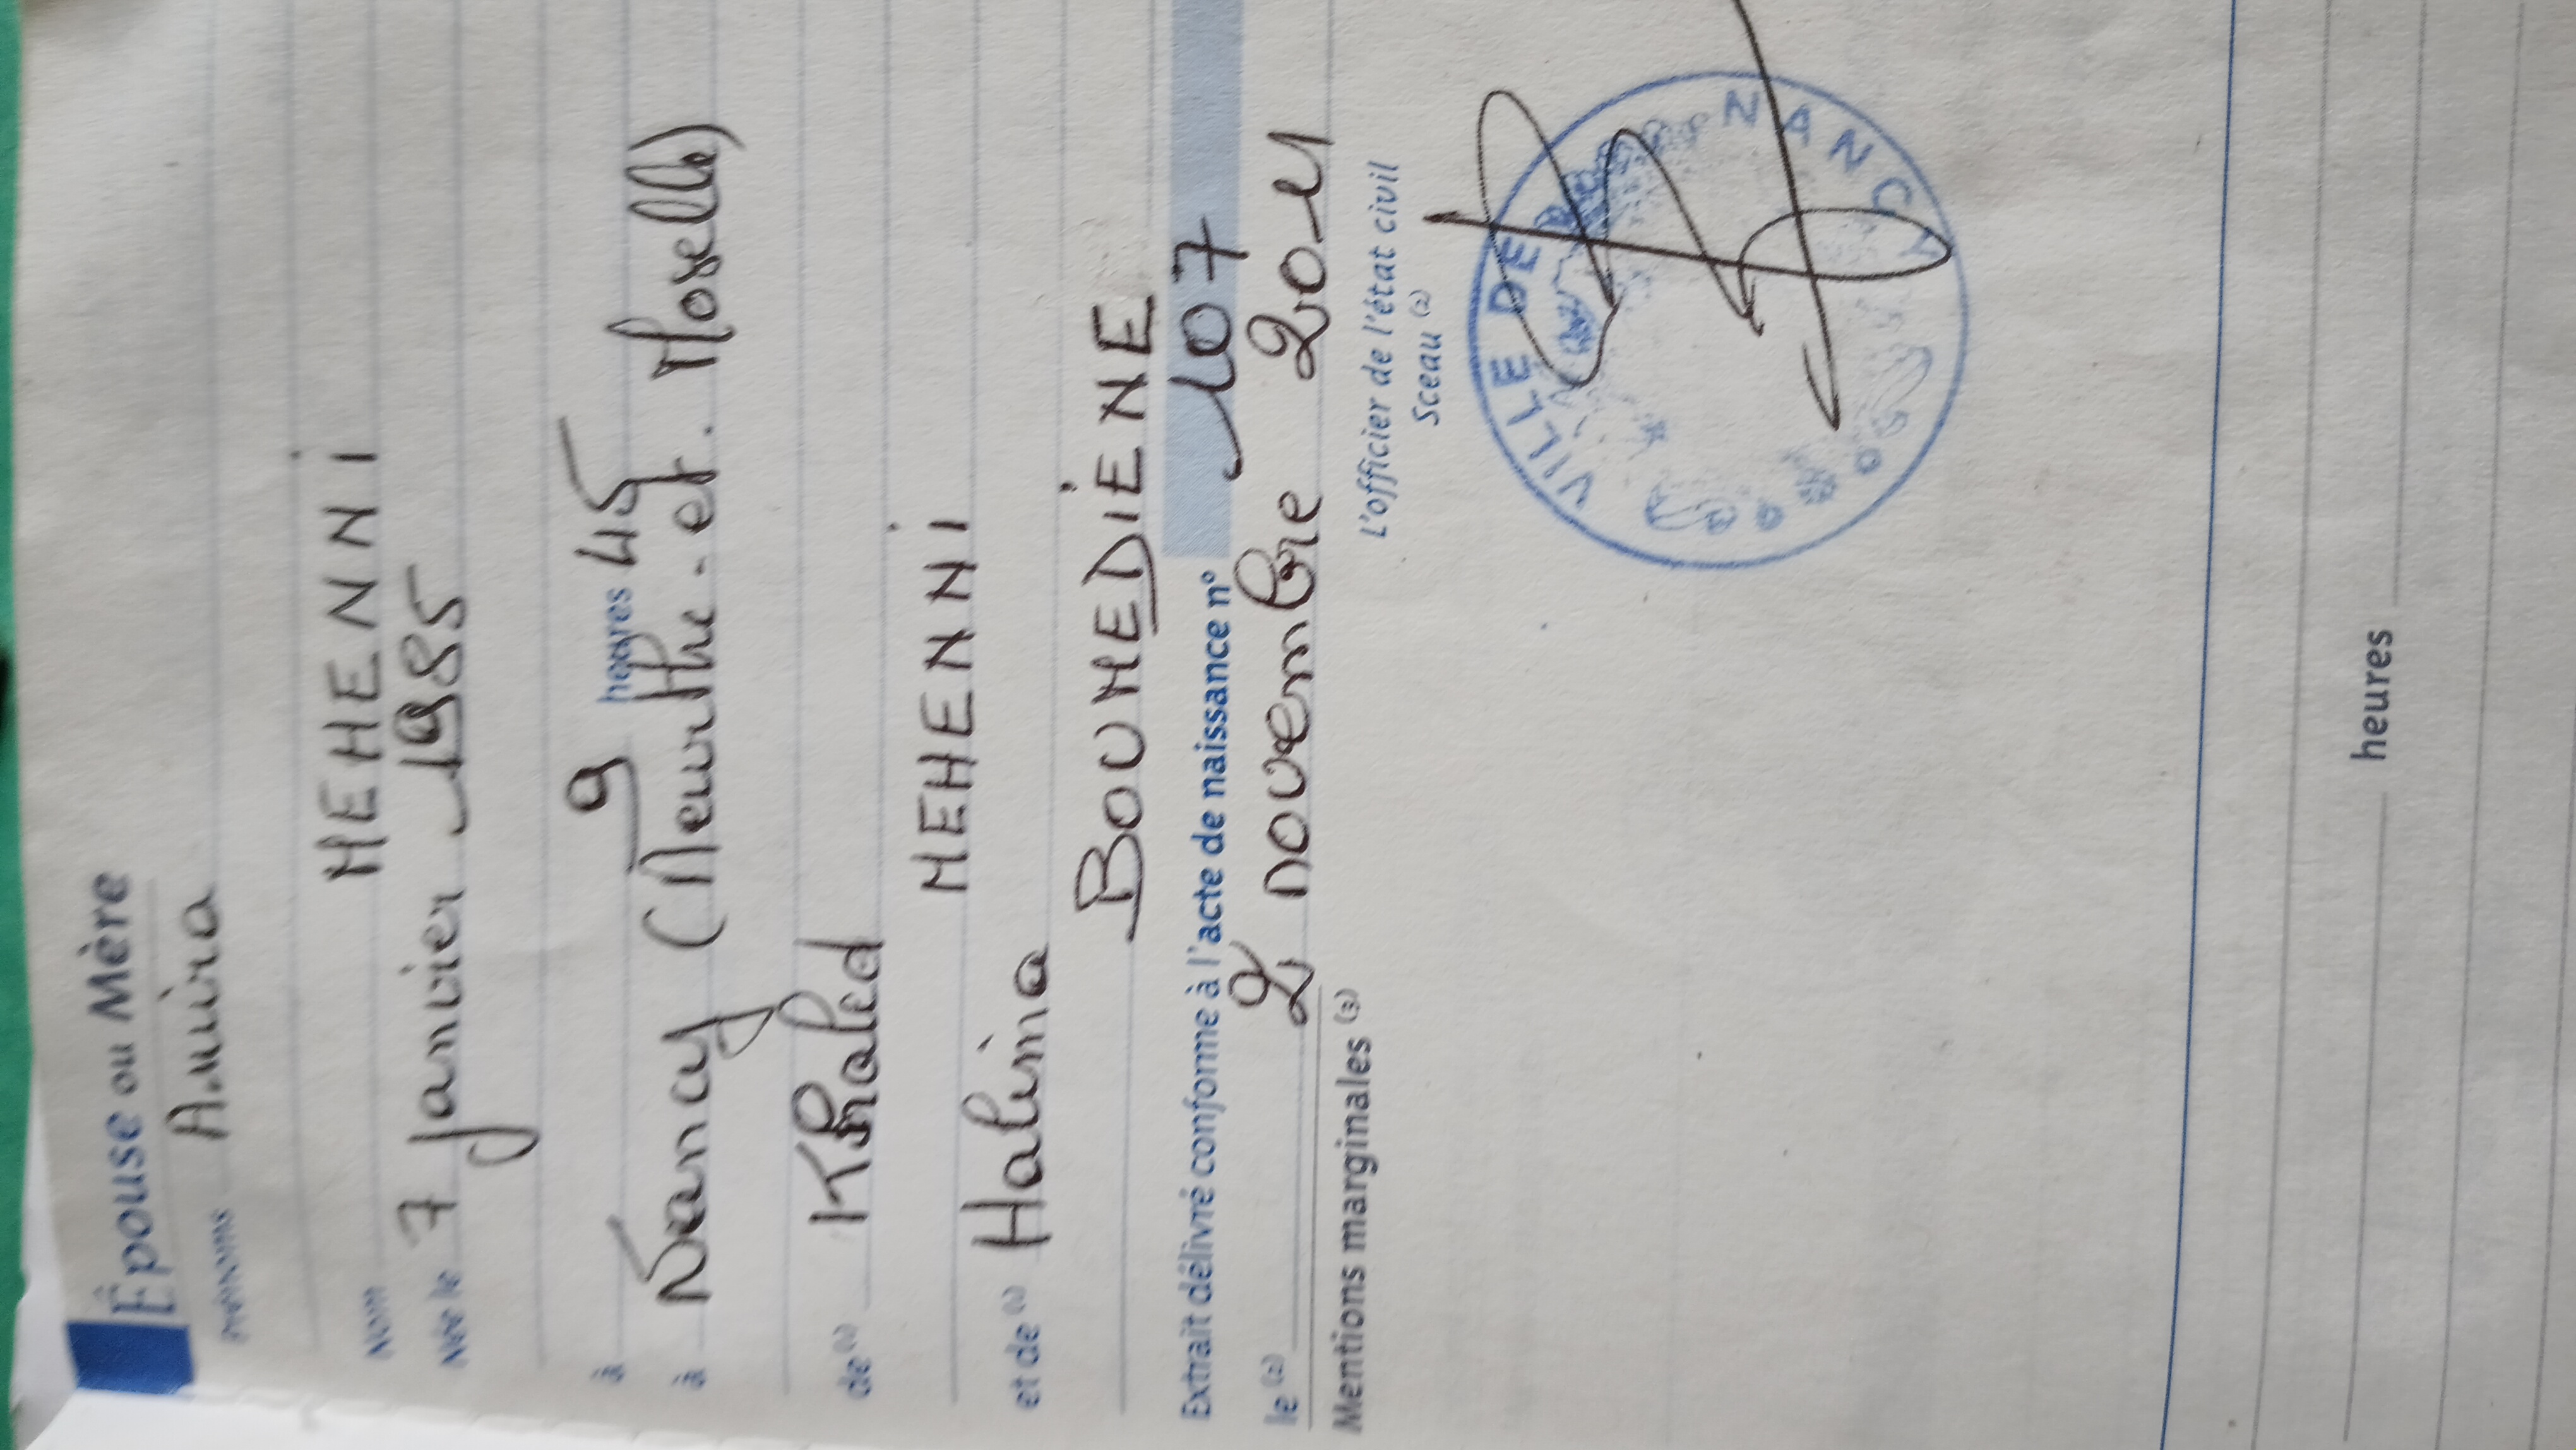 Épouse ou Mère
Prénoms Amira
Nom MEHENNI
Née le 7 janvier 1985
à 9 heures 45
à Nancy (Meurthe-et-Moselle)
de (1) Khaled
MEHENNI
et de (1) Halima
BOUMEDIENE
Extrait délivré conforme à l'acte de naissance n° 107
le (2) 2 novembre 2011
L'officier de l'état civil
Sceau (2)
VILLE DE NANCY
Mentions marginales (3)
heures